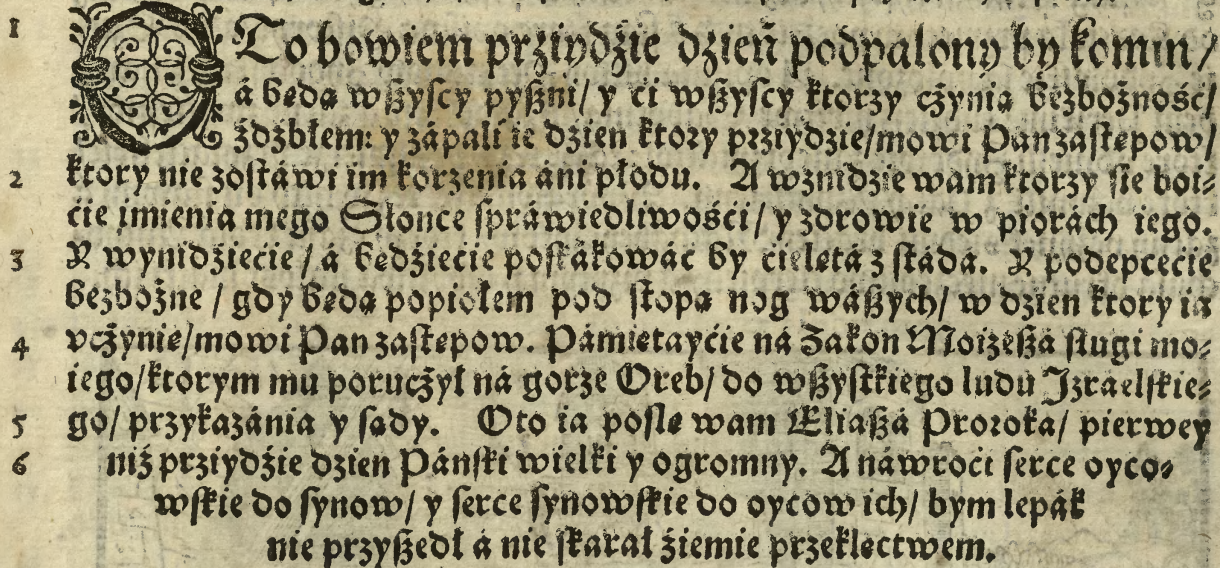 1 OTo bowiem prziydźie dzień podpalony by komin/
á będą wßyscy pyßni/ y ci wßyscy ktorzy cżynia bezbożność/
źdźbłem: y zápali ie dzien ktory prziydzie/mowi Pan zastępow/
2 ktory nie zostáwi im korzenia áni płodu. A wznidzie wam ktorzy się boi⸗
ćie imienia mego Słonce spráwiedliwośći/ y zdrowie w piorách iego.
3 Y wynidźiećie/ á będźiećie poskákowáć by ćielętá z stáda. Y podepcećie
bezbożne/ gdy będą popiołem pod stopą nog wáßych/ w dzien ktory ia
4 vcżynię/mowi Pan zastępow. Pámiętayćie ná Zakon Moiżeßá sługi mo⸗
iego/ktorym mu porucżył ná gorze Oreb/ do wßystkiego ludu Izraelskie⸗
5 go/ przykazánia y sądy. Oto ia poslę wam Eliaßá Proroká/ pierwey
6 niż prziydźie dzien Páński wielki y ogromny. A náwroći serce oyco⸗
wskie do synow/ y serce synowskie do oycow ich/ bym lepák
nie przyßedł á nie skarał źiemie przeklęctwem.